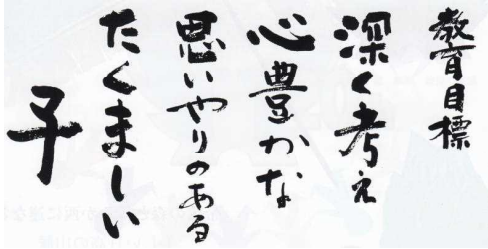 教育目標
深く考え
心豊かな
思いやりのある
たくましい
子